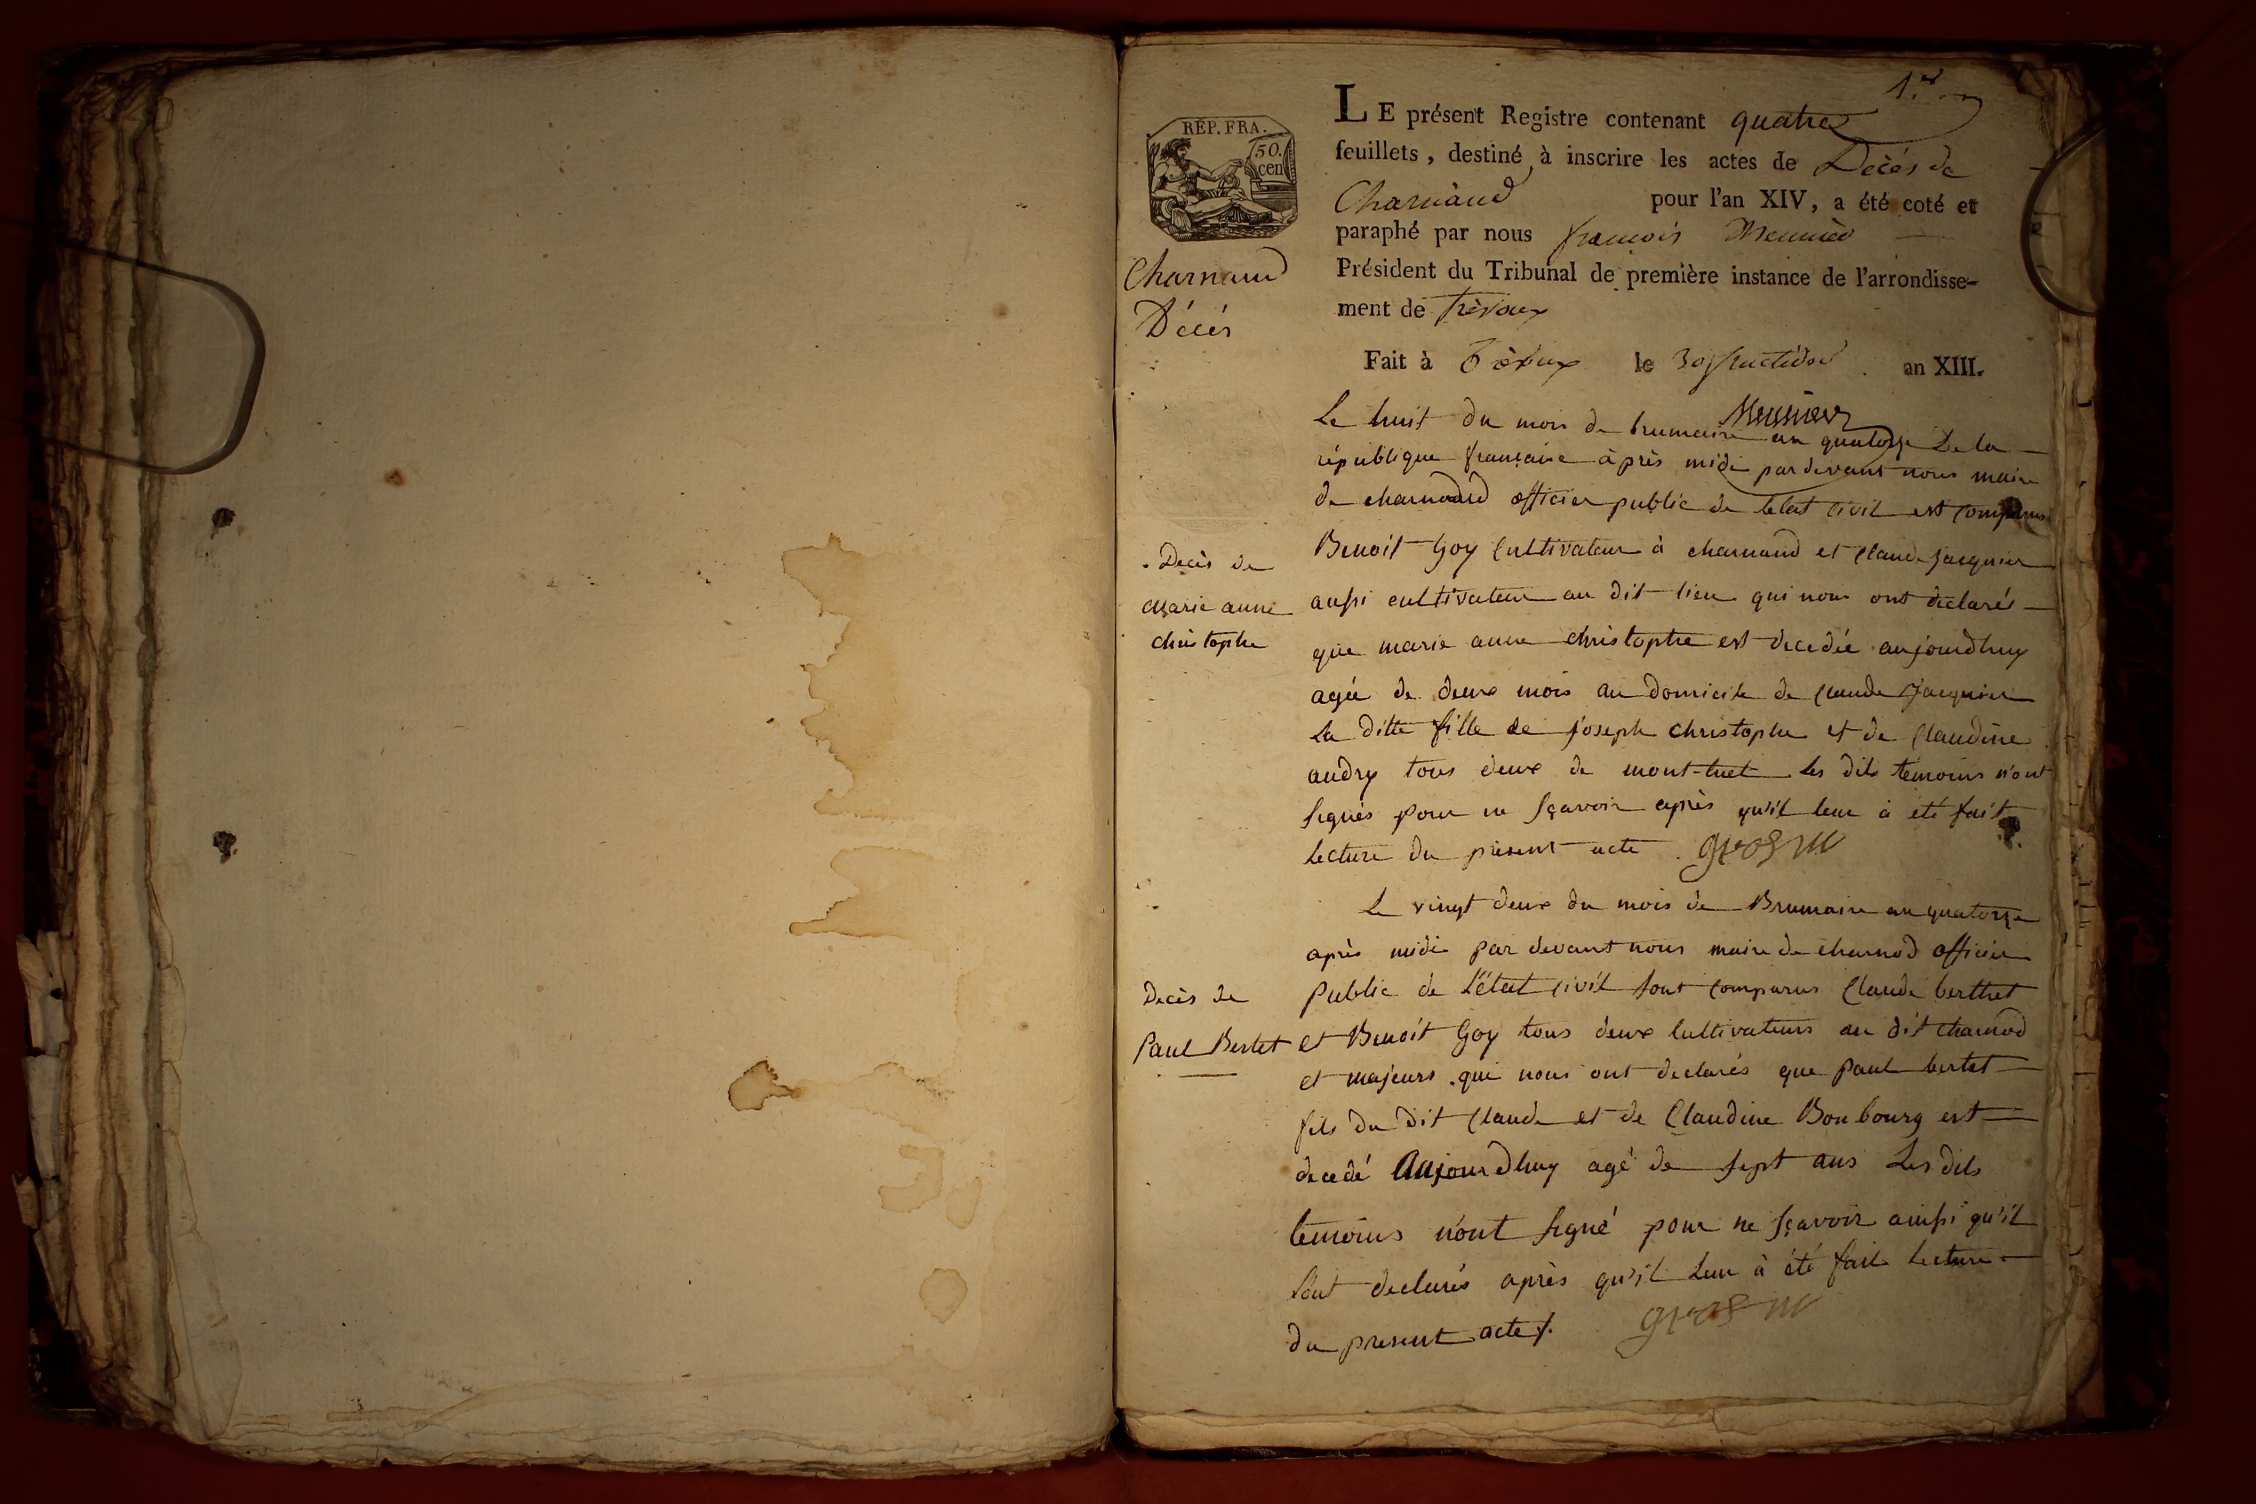 1.er
RÉP. FRA.
50.
cen
LE présent Registre contenant quatre
feuillets, destiné à inscrire les actes de Décès de
Charnaud pour l'an XIV, a été coté et
paraphé par nous françois Meunier
Président du Tribunal de première instance de l'arrondisse-
ment de Trévoux
Fait à Trévoux le 30 fructidor an XIII.
Charnaud
Décés
Meunier
Le huit du mois de brumaire an quatorze De la
république française après midi par devant nous maire
de charnaud officier public de letat civil est comparus
Benoit Goy Cultivateur à charnaud et Claude jacquier
aussi cultivateur au dit lieu qui nous ont déclarés
que marie anne christophe est decedée aujourdhuy
agée de deux mois au domicile de Claude Jacquier
La ditte fille de joseph christophe et de Claudine
audry tous deux de mont-luel les dits temoins n'ont
signés pour ne sçavoir après qu'il leur à été fait
lecture du présent acte. gros m
Decès de
Marie anne
christophe
Le vingt deux du mois de Brumaire an quatorze
après midi par devant nous maire de charnod officier
public de L'état civil sont comparus Claude berthet
et Benoit Goy tous deux Cultivateurs au dit charnod
et majeurs. qui nous ont declarés que paul bertet
fils du dit Claude et de Claudine Bonbourg est
decedé Aujourdhuy agé de sept ans Les dits
temoins n'ont signé pour ne sçavoir ainsi qu'il
l'ont declarés après qu'il leur à été fait lecture
du present acte. gros m
Decès de
Paul Bertet